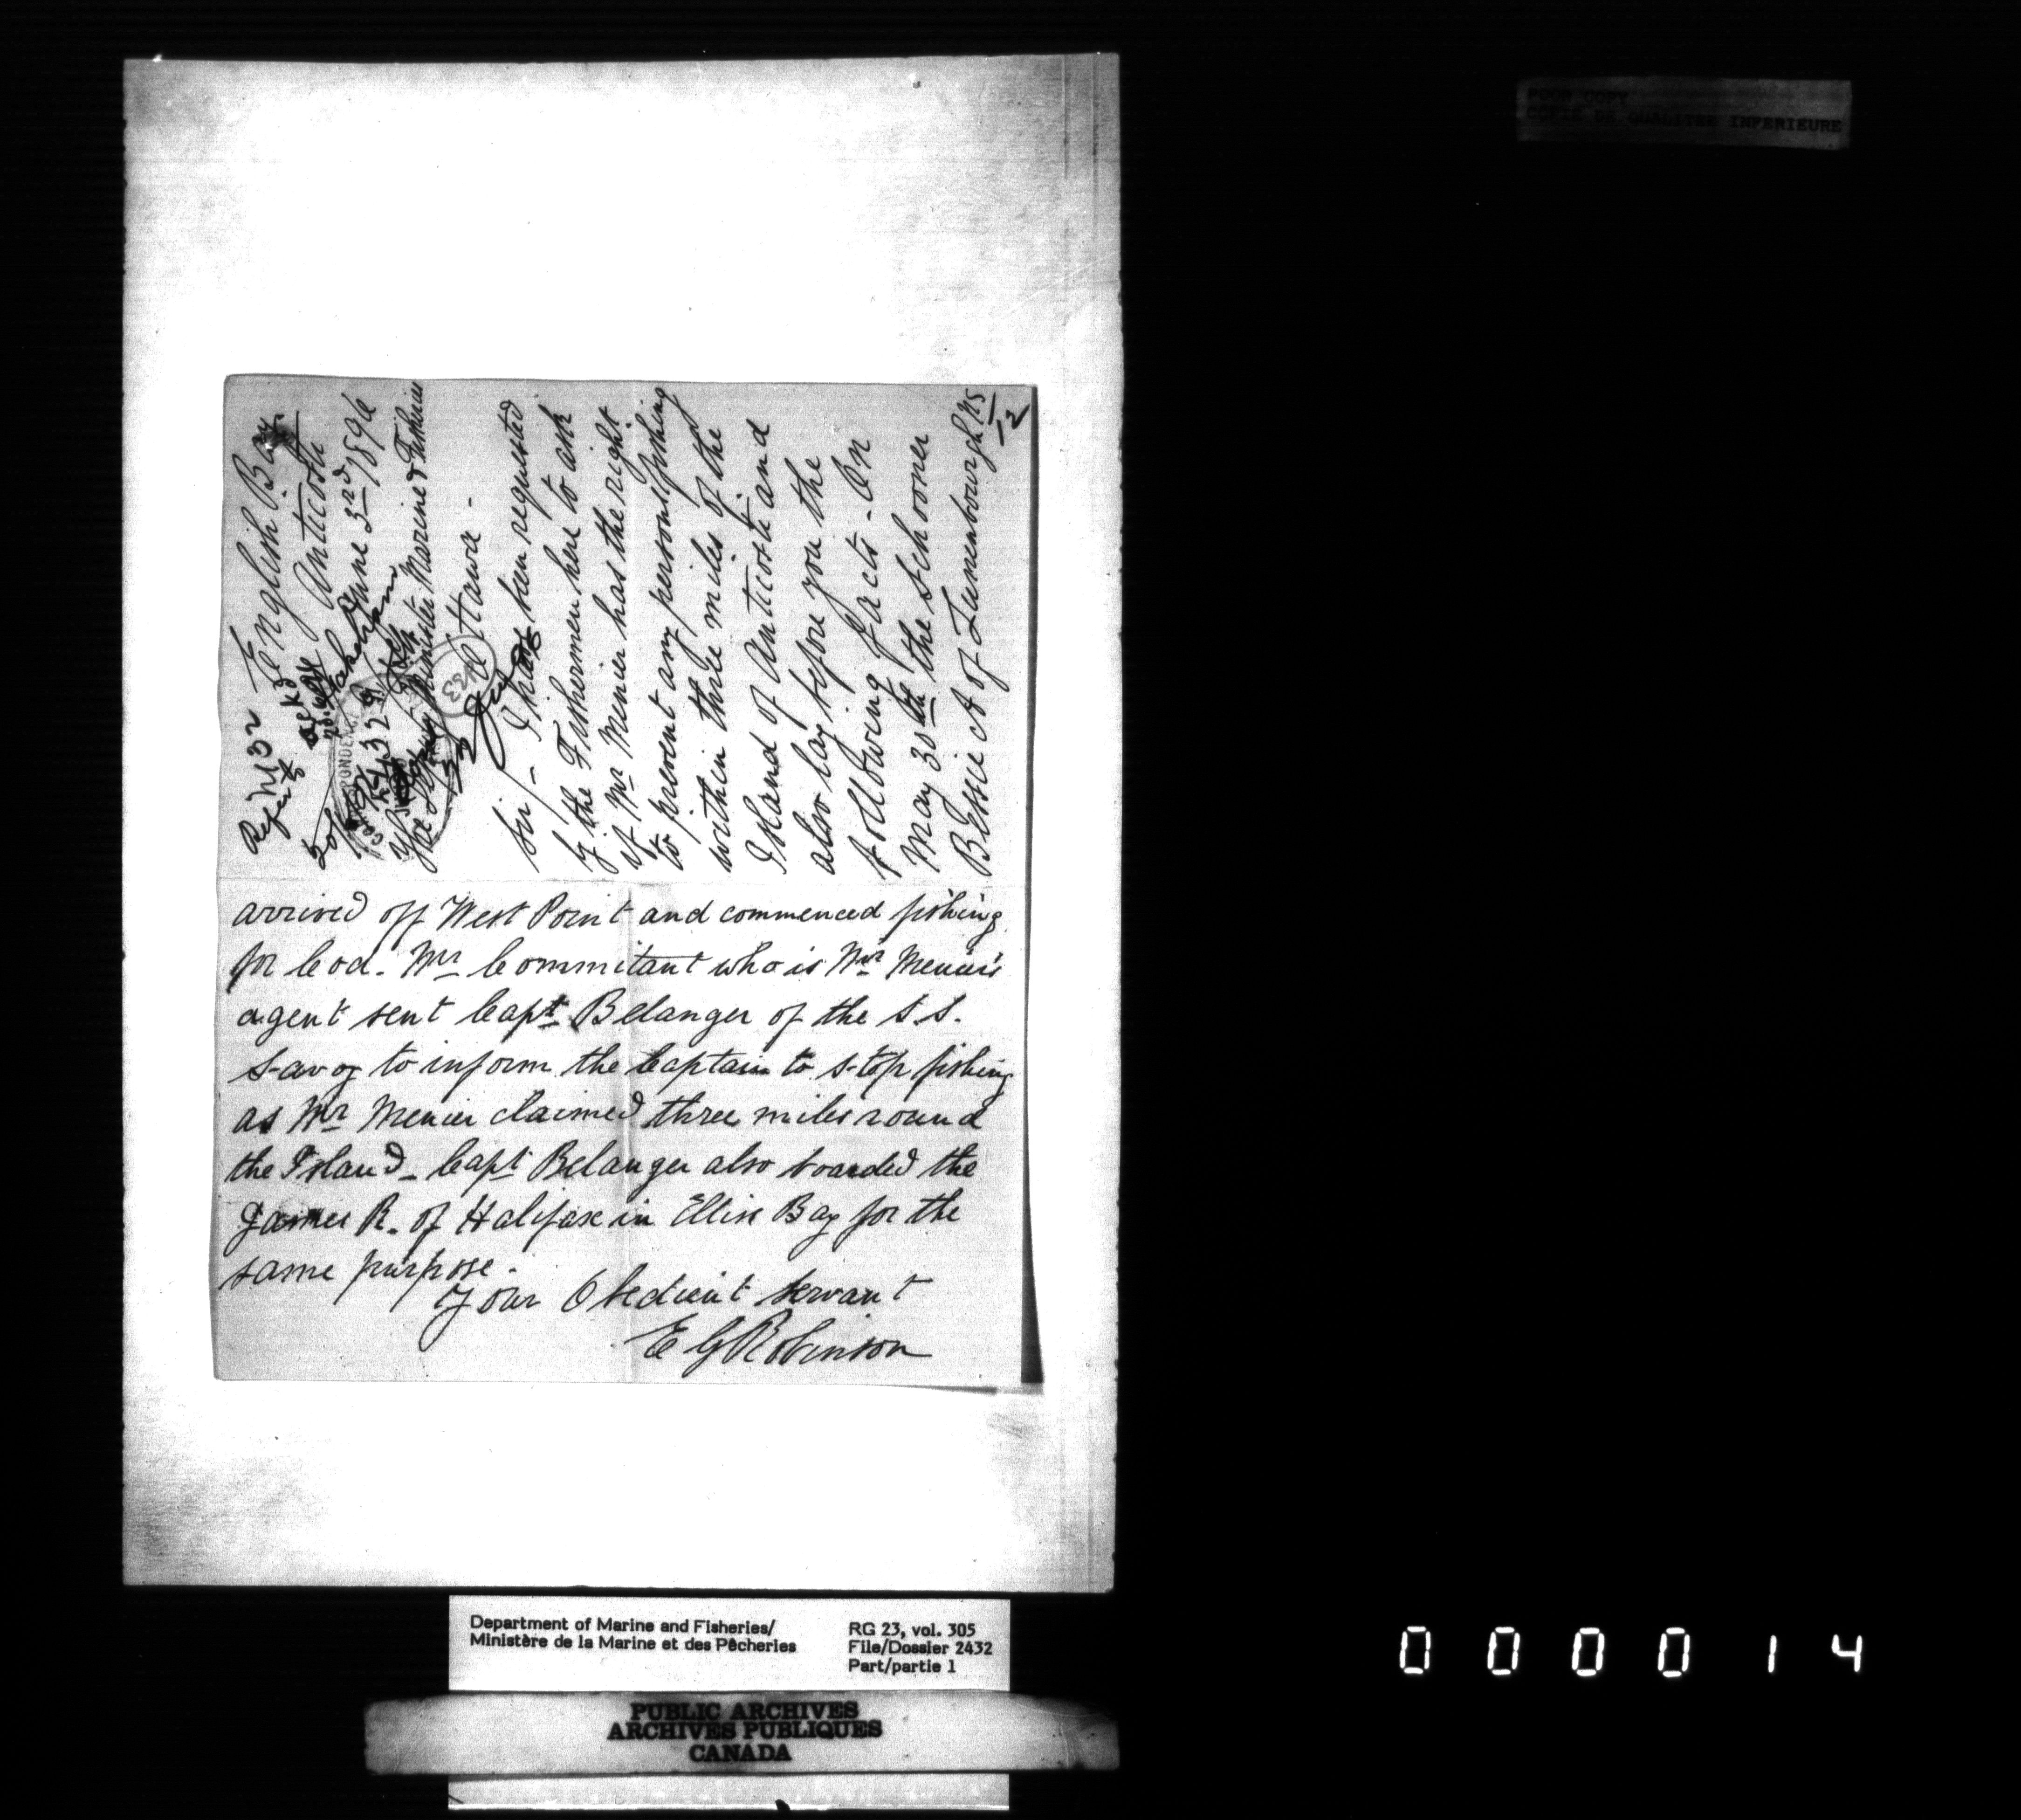 POOR COPY
COPIE DE QUALITEE INFERIEURE
English Bay.
Anticosti
June 3rd 1896
Minister Marine & Fisheries
Ottawa -
Sir/- I have been requested
by the Fishermen here to ask
if Mr Menier has the right
to prevent any persons fishing
within three miles of the
Island of Anticosti and
also lay before you the
following facts - On
May 30th the Schooner
Bessie A of Lunenbourgh
arrived off West Point and commenced fishing
for Cod. Mr Commitant who is Mr Menier's
agent sent Capt Belanger of the S.S.
Savoy to inform the Captain to stop fishing
as Mr Menier claimed three miles round
the Island - Capt Belanger also boarded the
James R. of Halifax in Ellis Bay for the
same purpose.
Your Obedient Servant
E G Robinson
Department of Marine and Fisheries/
Ministère de la Marine et des Pêcheries
RG 23, vol. 305
File/Dossier 2432
Part/partie 1
PUBLIC ARCHIVES
ARCHIVES PUBLIQUES
CANADA
000014